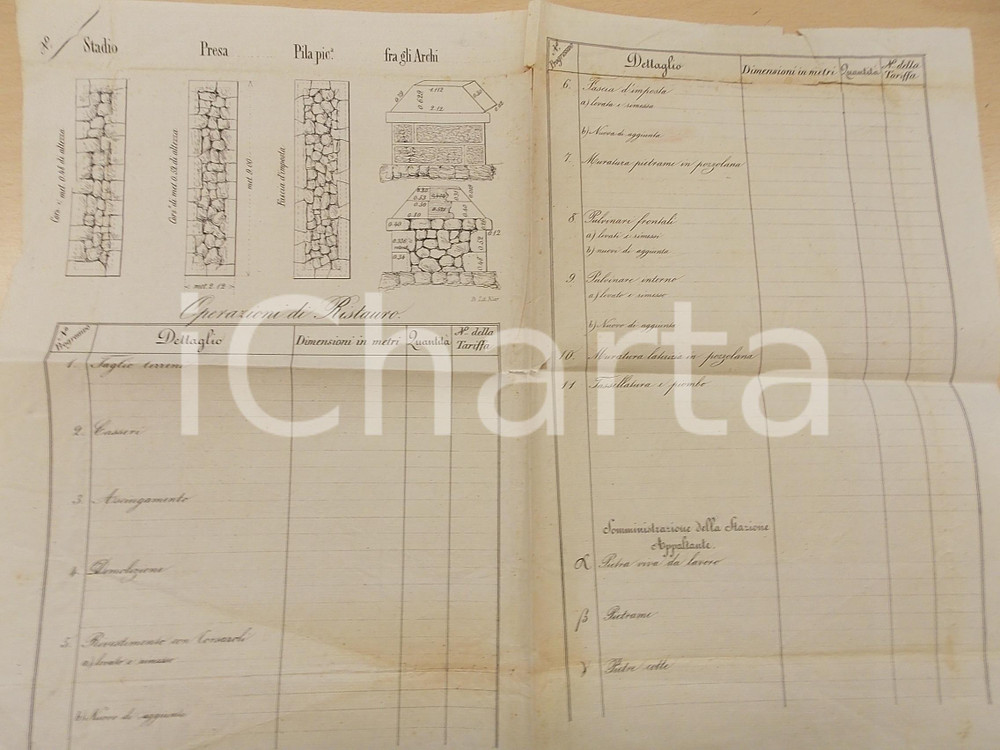 N.º
Stadio Presa Pila pic.ª fra gli Archi
Corsi met. 0.44 di altezza
Corsi di met. 0.52 di altezza
met. 9.00
Faccia d'imposta
< met. 2.12 >
0.628 4.112
2.12
Operazioni di Ristauro.
N.º Progressivo Dettaglio Dimensioni in metri Quantità N.º della Tariffa
1. Taglio terreno
2. Casseri
3. Asciugamento
4. Demolizione
5. Rivestimento con Corsaroli
a) levato e rimesso
b) Nuovo di aggiunta
N.º Progressivo Dettaglio Dimensioni in metri Quantità N.º della Tariffa
6. Fascia d'imposta
a) levata e rimessa
b) Nuova di aggiunta
7. Muratura pietrame in pozzolana
8. Pulvinari frontali
a) levati e rimessi
b) nuovi di aggiunta
9. Pulvinare interno
a) levato e rimesso
b) Nuovo di aggiunta
10. Muratura laterizia in pozzolana
11. Tassellatura e piombo
Somministrazione della Stazione
Appaltante.
α Pietra viva da lavoro
β Pietrame
γ Pietre cotte
iCharta